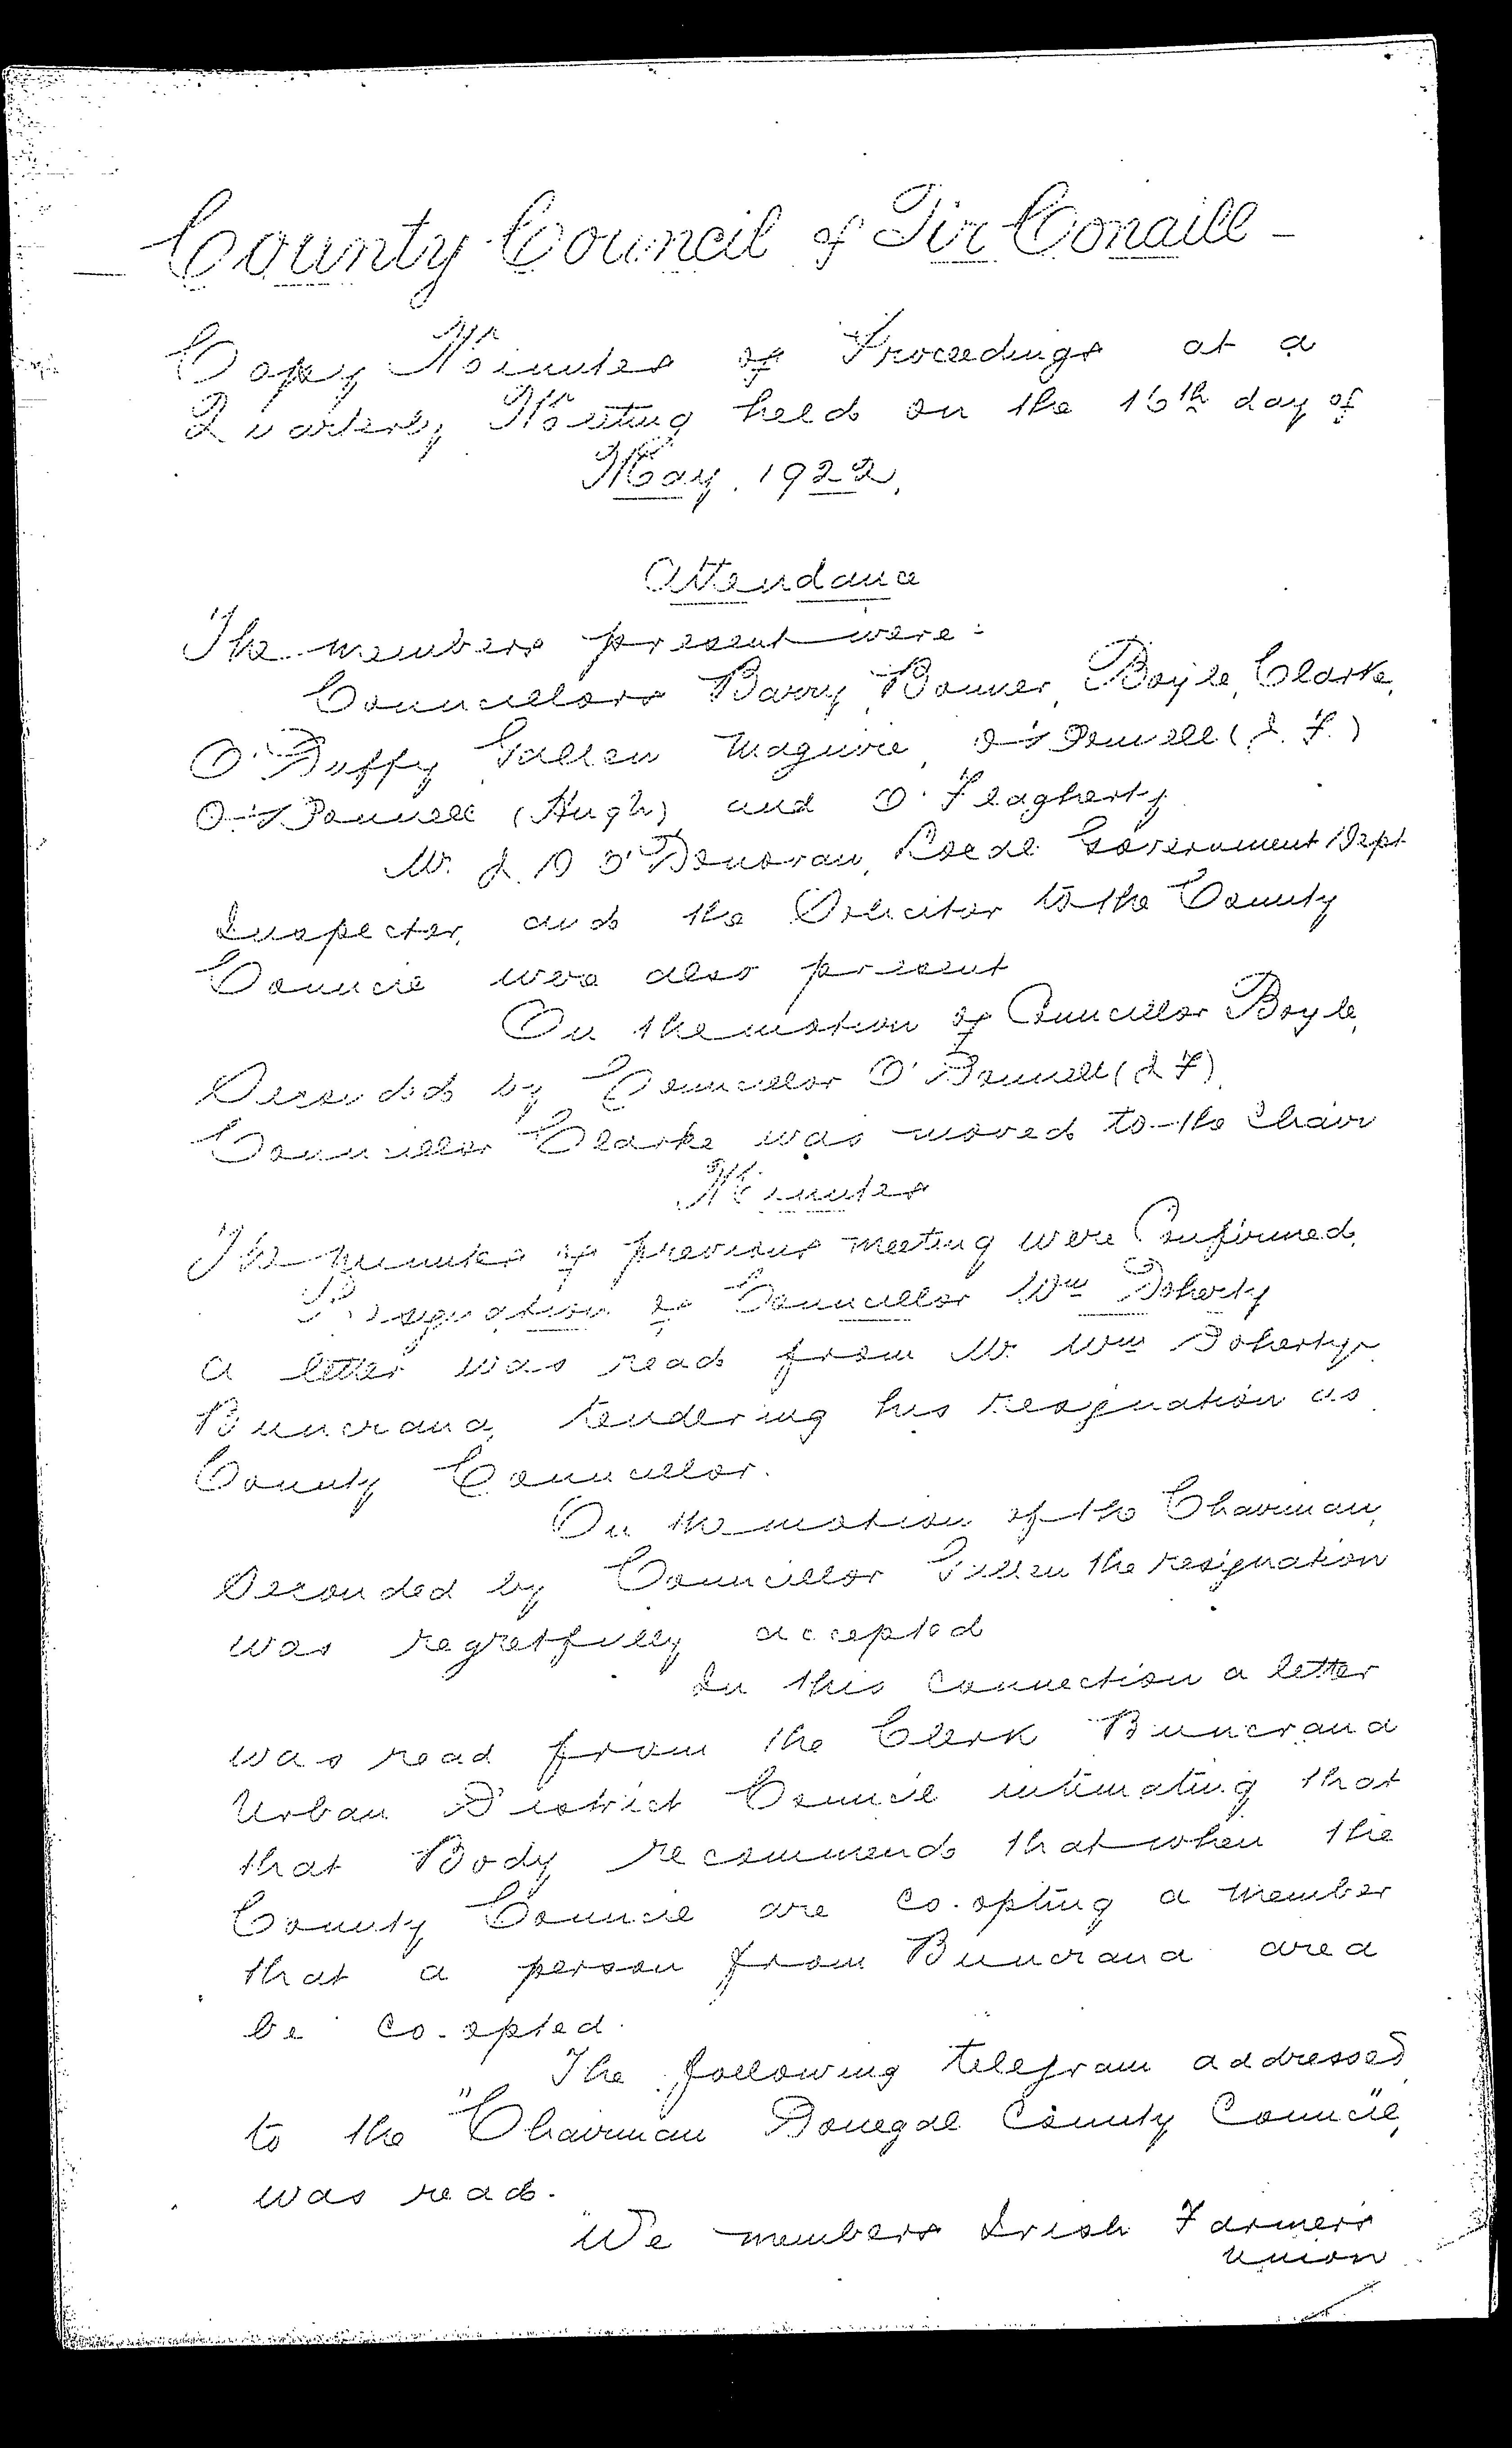 County Council of Tir Conaill -
Copy Minutes of Proceedings at a
Quarterly Meeting held on the 16th day of
May. 1922.
Attendance
The members present were:
Councillors Barry, Bonner, Boyle, Clarke,
O'Duffy Gallen Maguire, O'Donnell (J. F.)
O'Donnell (Hugh) and O'Flagherty.
Mr. J. D O'Donovan, Local Government Dept
Inspector, and the Solicitor to the County
Council were also present
On the motion of Councillor Boyle,
Seconded by Councillor O'Donnell (J F)
Councillor Clarke was moved to the Chair
Minutes
The minutes of previous meeting were Confirmed.
Resignation of Councillor Wm Doherty
A letter was read from Mr. Wm Doherty
Buncrana, tendering his resignation as
County Councillor.
On the motion of the Chairman,
Seconded by Councillor Gallen the resignation
was regretfully accepted
In this connection a letter
was read from the Clerk Buncrana
Urban District Council intimating that
that Body recommends that when the
County Council are co-opting a member
that a person from Buncrana area
be co-opted.
The following telegram addressed
to the "Chairman Donegal County Council,"
was read.
"We members Irish Farmer's
Union